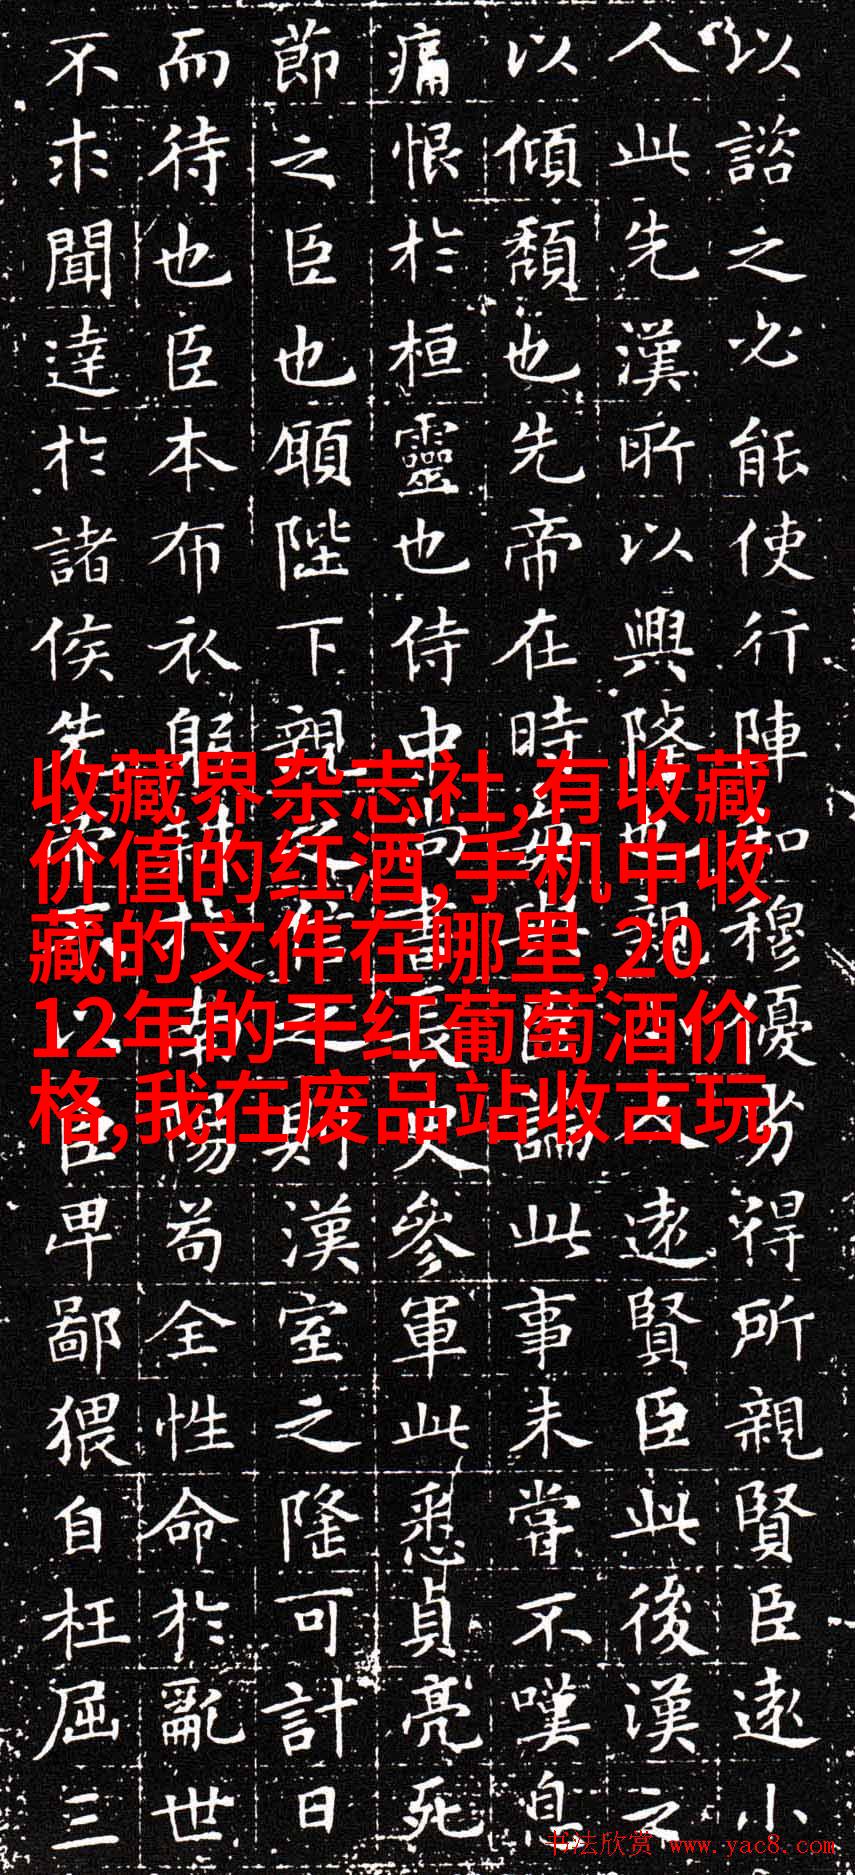 以諮之必能使行陣和穆優劣得所親賢臣遠小
人此先漢所以興隆也親小人遠賢臣此後漢之
以傾頹也先帝在時每與臣論此事未嘗不嘆自
痛恨於桓靈也侍中尚書長史參軍此悉貞亮死
節之臣也願陛下親之信之則漢室之隆可計日
而待也臣本布衣躬耕於南陽苟全性命於亂世
不求聞達於諸侯先帝不以臣卑鄙猥自枉屈三
收藏界杂志社,有收藏
价值的红酒,手机中收
藏的文件在哪里,20
12年的干红葡萄酒价
格,我在废品站收古玩
书法欣赏 www.yac8.com